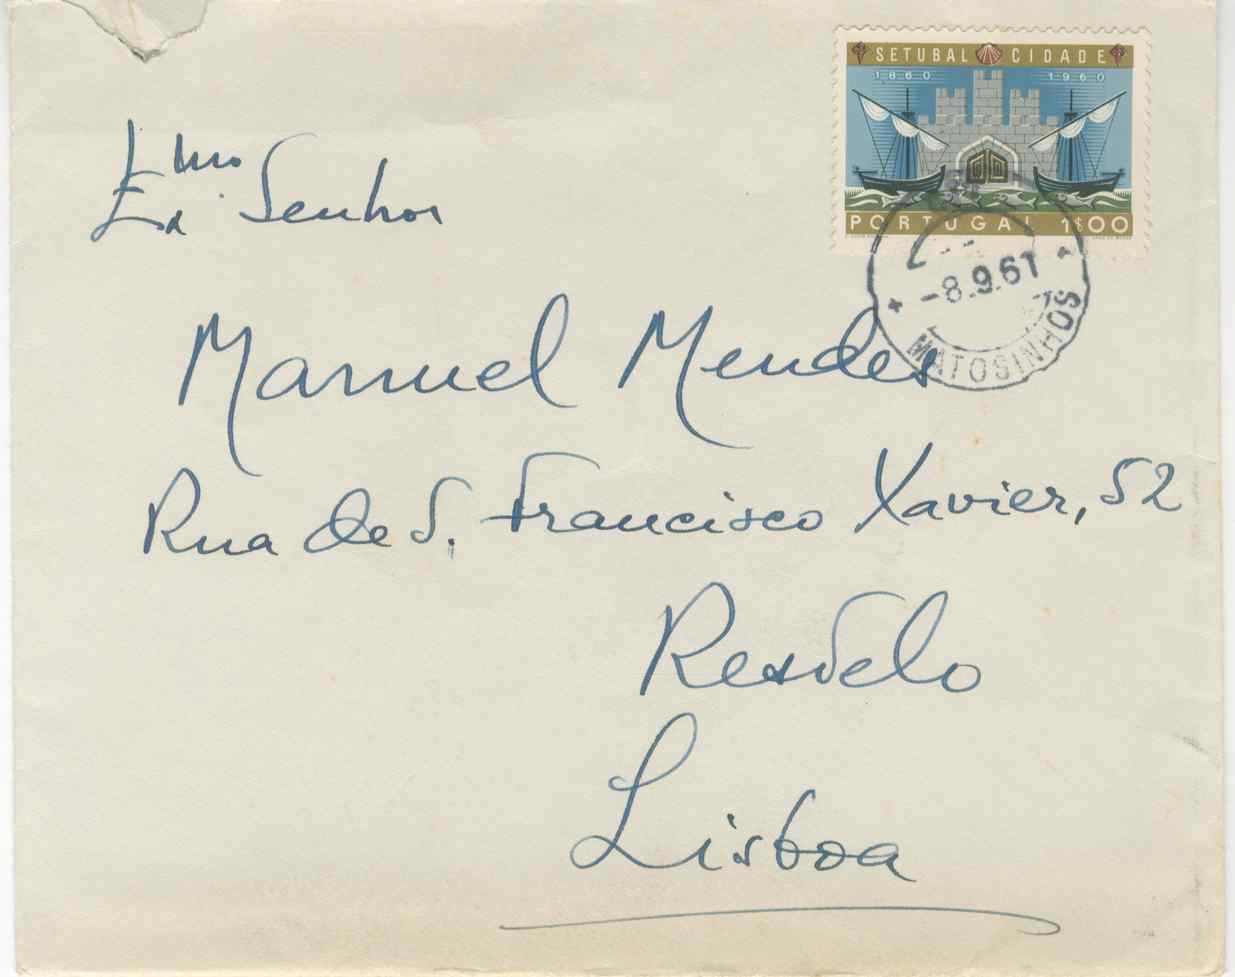 SETUBAL CIDADE
1860 1960
PORTUGAL 1$00
-8.9.61
MATOSINHOS
Exmo Senhor
Manuel Mendes
Rua de S. Francisco Xavier, 52
Restelo
Lisboa